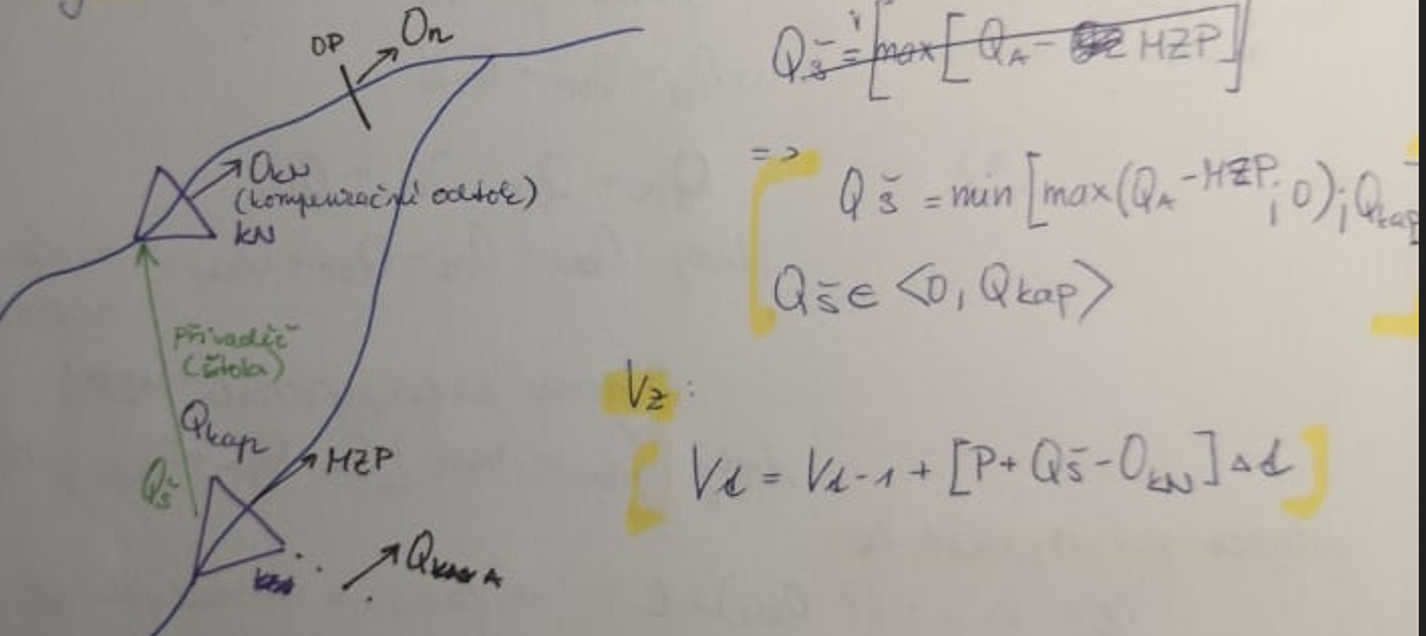 OP
On
OkN
(kompenzační odtok)
kN
Přivaděč
(štola)
Qkap
Qš
MZP
Qš = [max [QA - MZP]]
=>
Qš = min [max(QA - MZP; 0); Qkap
Qš ∈ <0, Qkap>
Vz:
[Vt = Vt-1 + [P + Qš - OkN] Δt]